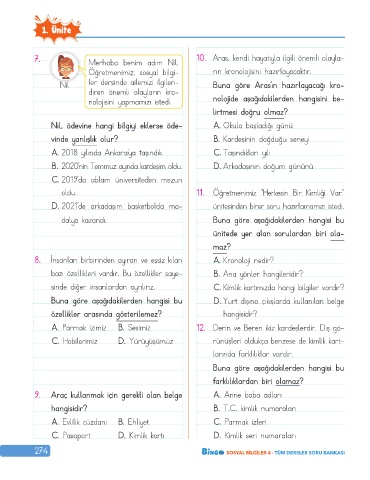 1. Ünite
7.
Merhaba benim adım Nil.
Öğretmenimiz, sosyal bilgi-
ler dersinde ailemizi ilgilen-
diren önemli olayların kro-
nolojisini yapmamızı istedi.
Nil
Nil, ödevine hangi bilgiyi eklerse öde-
vinde yanlışlık olur?
A. 2018 yılında Ankara'ya taşındık.
B. 2020'nin Temmuz ayında kardeşim oldu.
C. 2019'da ablam üniversiteden mezun
oldu.
D. 2021'de arkadaşım basketbolda ma-
dalya kazandı.
8. İnsanları birbirinden ayıran ve eşsiz kılan
bazı özellikleri vardır. Bu özellikler saye-
sinde diğer insanlardan ayrılırız.
Buna göre aşağıdakilerden hangisi bu
özellikler arasında gösterilemez?
A. Parmak izimiz B. Sesimiz
C. Hobilerimiz D. Yürüyüşümüz
9. Araç kullanmak için gerekli olan belge
hangisidir?
A. Evlilik cüzdanı B. Ehliyet
C. Pasaport D. Kimlik kartı
10. Aras, kendi hayatıyla ilgili önemli olayla-
rın kronolojisini hazırlayacaktır.
Buna göre Aras'ın hazırlayacağı kro-
nolojide aşağıdakilerden hangisini be-
lirtmesi doğru olmaz?
A. Okula başladığı günü
B. Kardeşinin doğduğu seneyi
C. Taşındıkları yılı
D. Arkadaşının doğum gününü
11. Öğretmenimiz "Herkesin Bir Kimliği Var"
ünitesinden birer soru hazırlamamızı istedi.
Buna göre aşağıdakilerden hangisi bu
ünitede yer alan sorulardan biri ola-
maz?
A. Kronoloji nedir?
B. Ana yönler hangileridir?
C. Kimlik kartımızda hangi bilgiler vardır?
D. Yurt dışına çıkışlarda kullanılan belge
hangisidir?
12. Derin ve Beren ikiz kardeşlerdir. Dış gö-
rünüşleri oldukça benzese de kimlik kart-
larında farklılıklar vardır.
Buna göre aşağıdakilerden hangisi bu
farklılıklardan biri olamaz?
A. Anne baba adları
B. T.C. kimlik numaraları
C. Parmak izleri
D. Kimlik seri numaraları
274
BİNGO SOSYAL BİLGİLER 4 - TÜM DERSLER SORU BANKASI